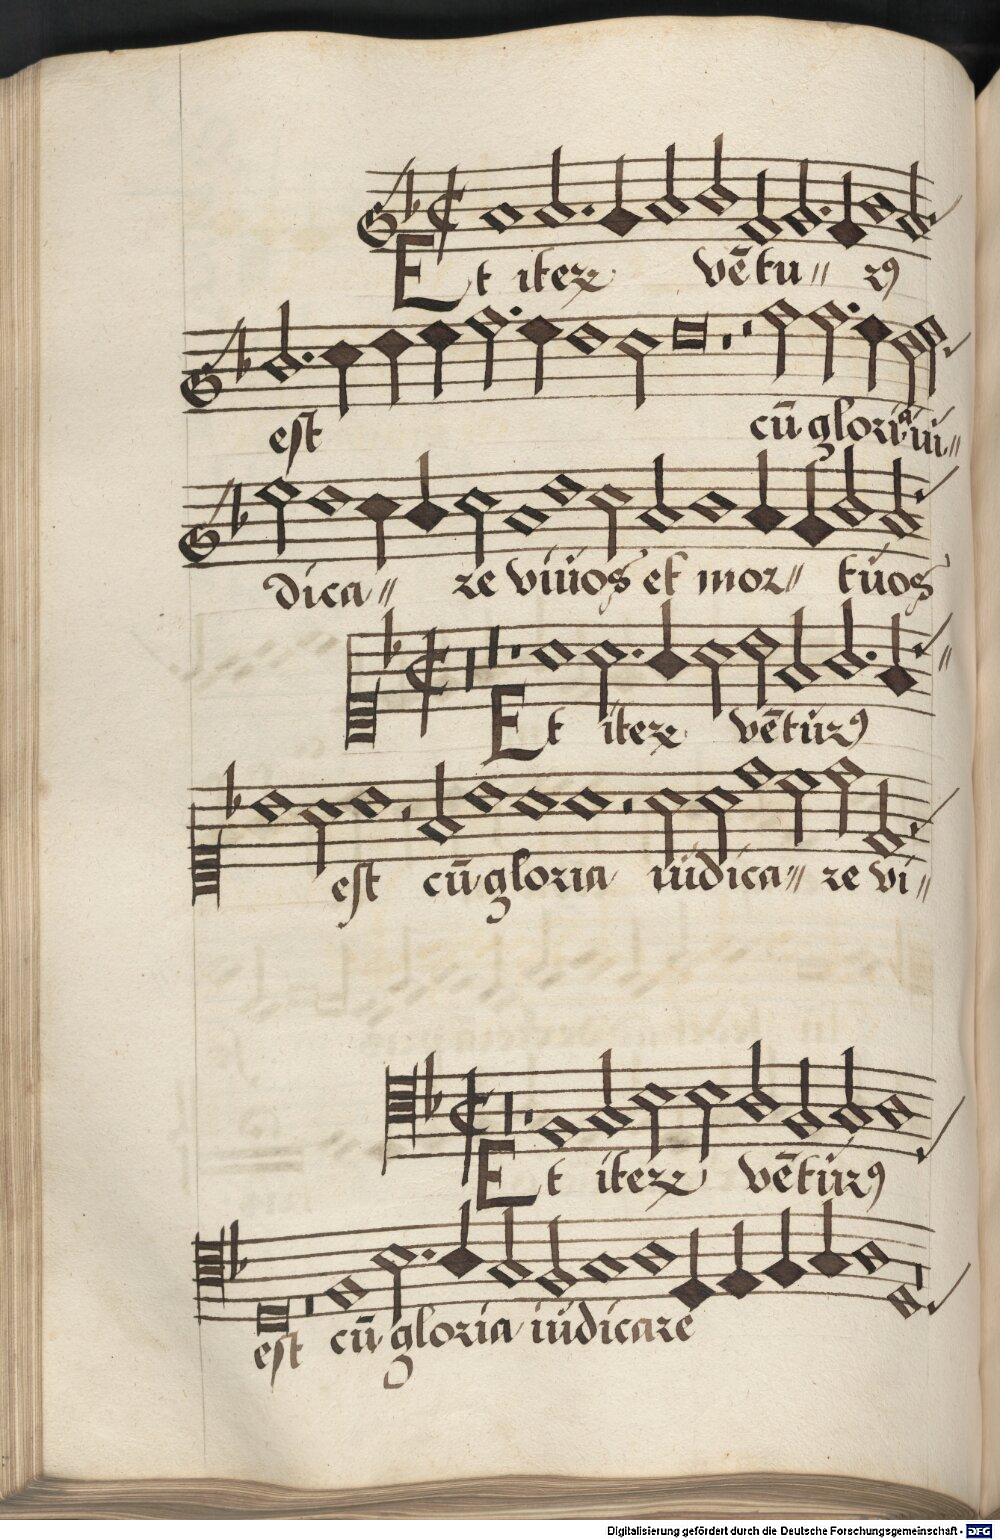 Et iterꝝ vētu〃 rꝰ
est cū gloria iu〃
dica〃 re viuos et mor〃 tuos
Et iterꝝ vēturꝰ
est cū gloria iudica〃 re vi〃
Et iterꝝ vēturꝰ
est cū gloria iudicare
Digitalisierung gefördert durch die Deutsche Forschungsgemeinschaft - DFG